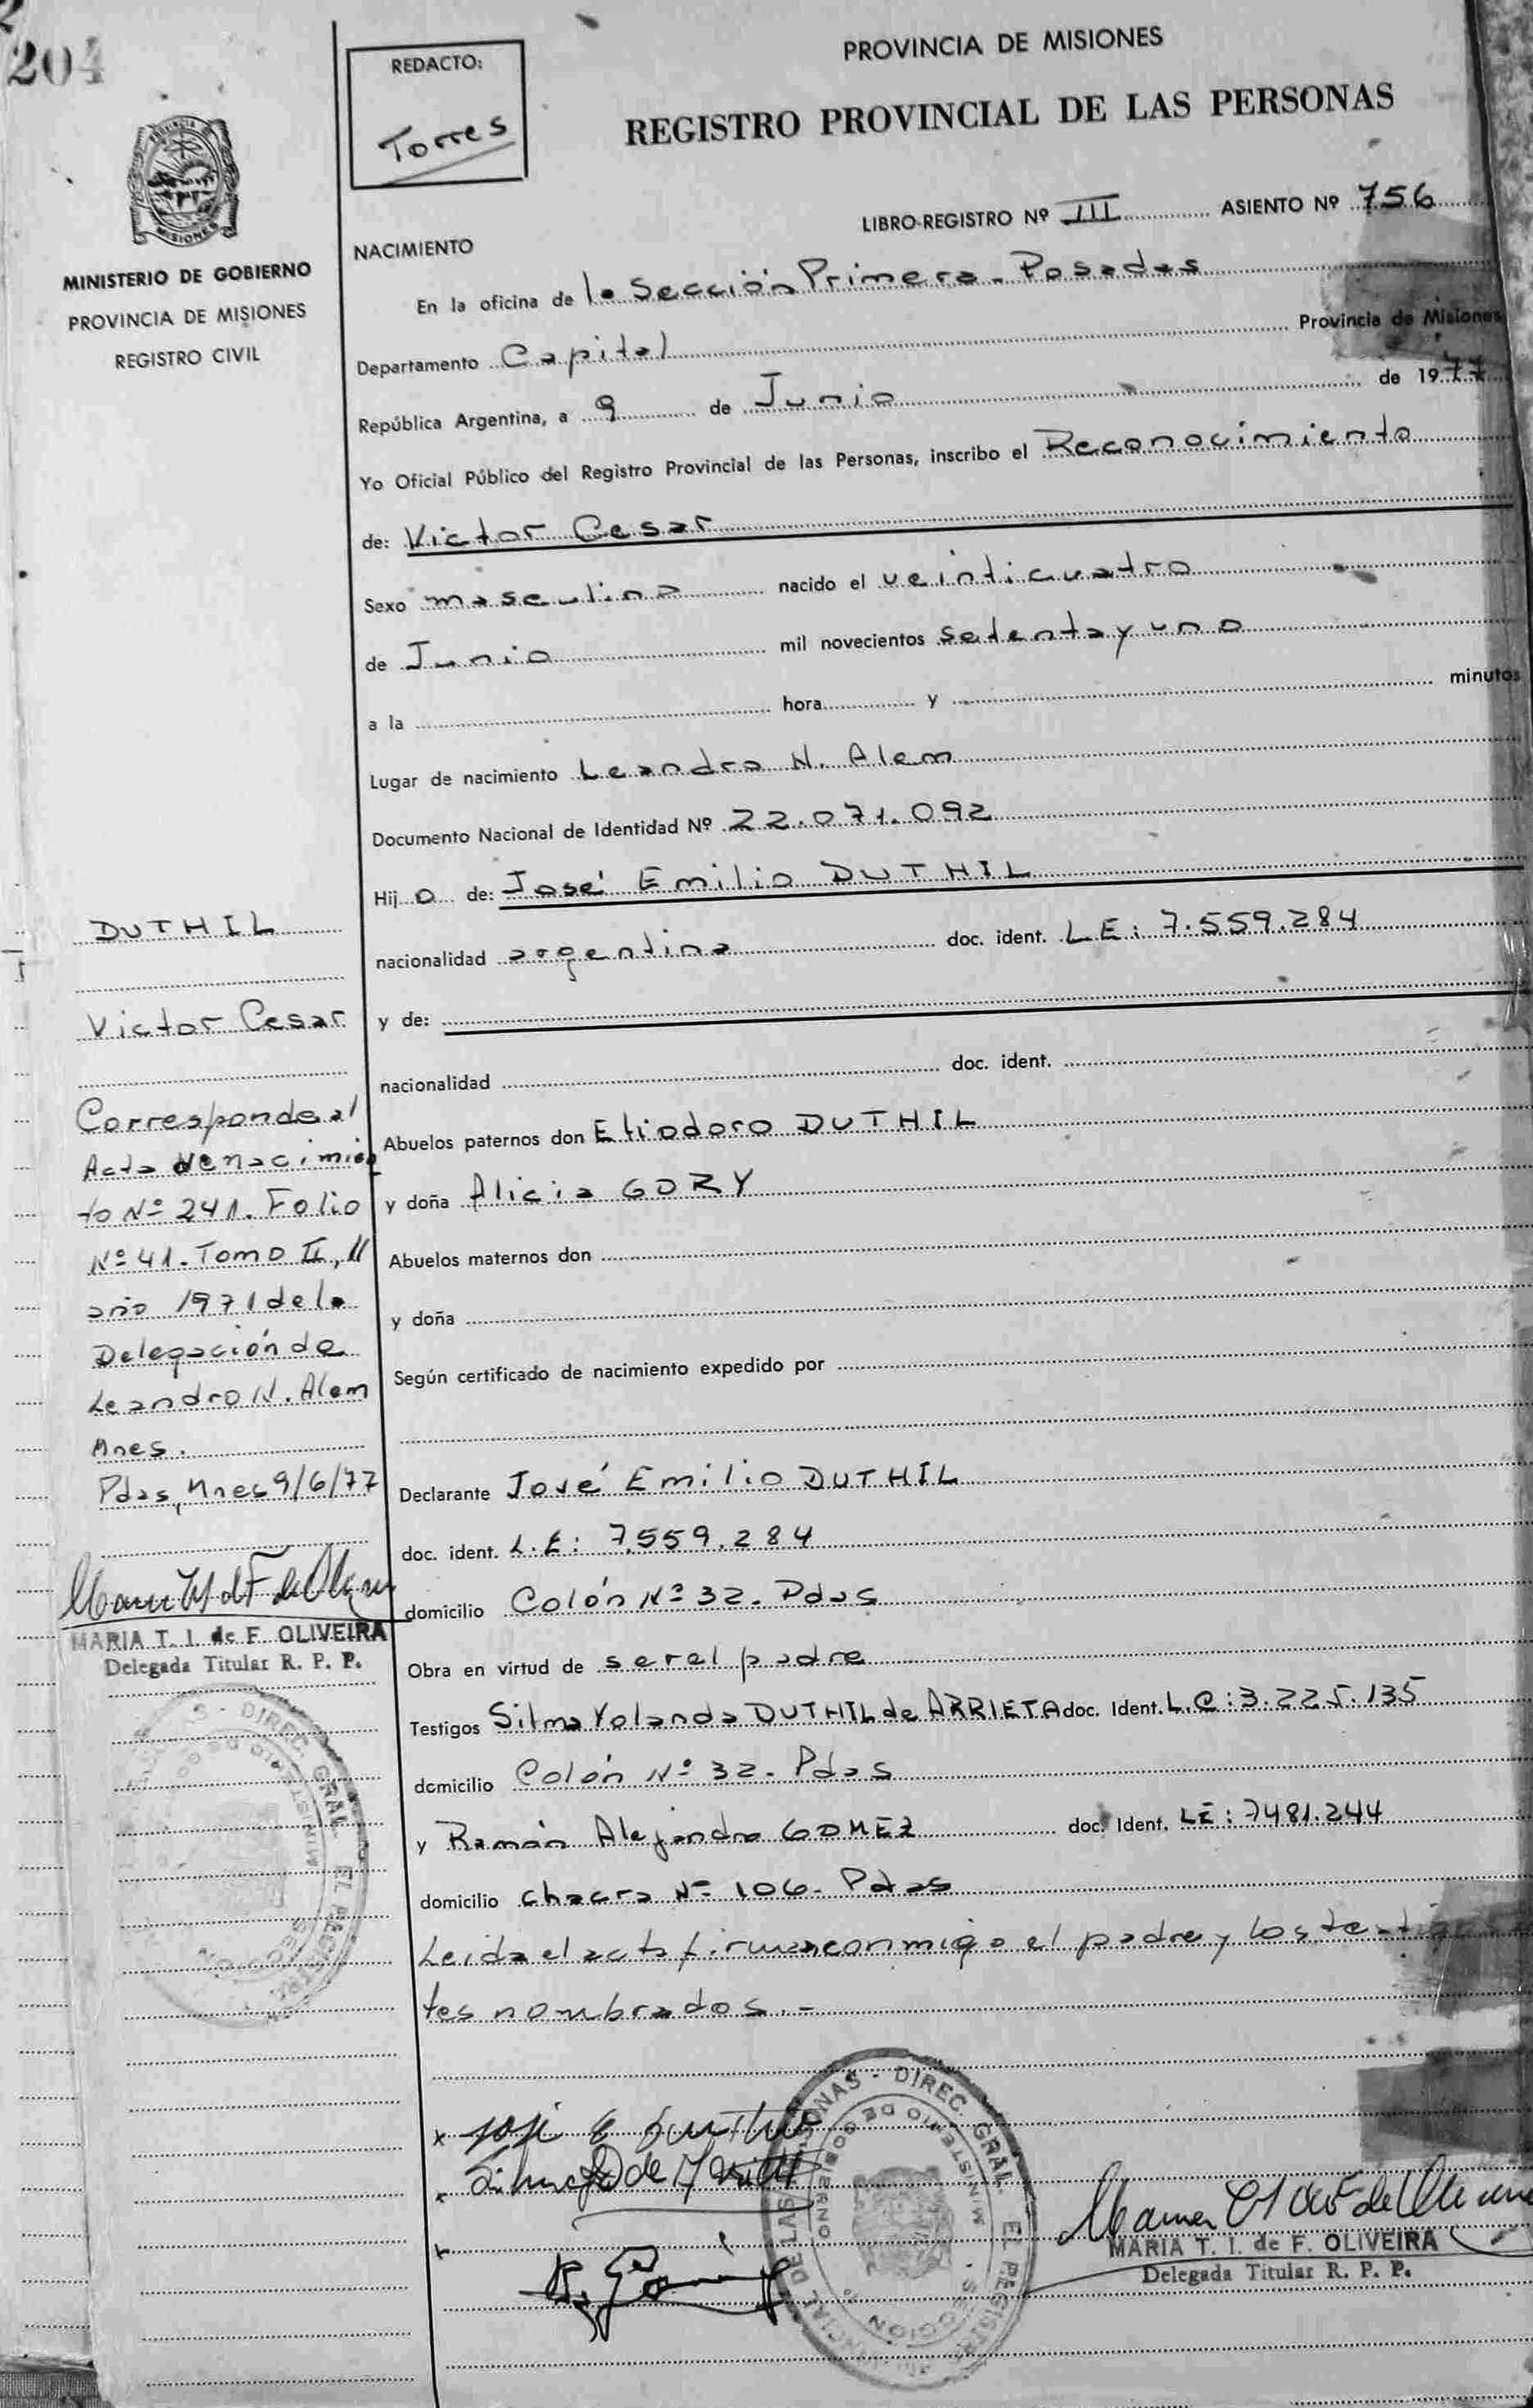 204
REDACTO:
Torres
PROVINCIA DE MISIONES
REGISTRO PROVINCIAL DE LAS PERSONAS
LIBRO-REGISTRO Nº III ASIENTO Nº 756
MISIONES
MINISTERIO DE GOBIERNO
PROVINCIA DE MISIONES
REGISTRO CIVIL
NACIMIENTO
En la oficina de la Sección Primera - Posadas
Departamento Capital Provincia de Misiones
República Argentina, a 9 de Junio de 1977
Yo Oficial Público del Registro Provincial de las Personas, inscribo el Reconocimiento
de: Victor Cesar
Sexo masculino nacido el veinticuatro
de Junio mil novecientos setenta y uno
a la hora y minutos
Lugar de nacimiento Leandro N. Alem
Documento Nacional de Identidad Nº 22.071.092
Hijo de: José Emilio DUTHIL
nacionalidad argentina doc. ident. LE: 7.559.284
y de:
nacionalidad doc. ident.
Abuelos paternos don Eliodoro DUTHIL
y doña Alicia GORY
Abuelos maternos don
y doña
Según certificado de nacimiento expedido por
Declarante José Emilio DUTHIL
doc. ident. L.E: 7.559.284
domicilio Colón Nº 32. Pdas
Obra en virtud de ser el padre
Testigos Silma Yolanda DUTHIL de ARRIETA doc. Ident. L.C: 3.225.135
domicilio Colón Nº 32. Pdas
y Ramón Alejandro GOMEZ doc. Ident. LE: 7481.244
domicilio Chacra Nº 106. Pdas
Leida el acta firman conmigo el padre y los
tes nombrados.-
DUTHIL
Victor Cesar
Corresponde al
Acta de nacimien
to Nº 241. Folio
Nº 41. Tomo II, //
año 1971 de la
Delegación de
Leandro N. Alem
Mnes.
Pdas, Mnes 9/6/77
MARIA T. I. de F. OLIVEIRA
Delegada Titular R. P. P.
DIREC. GRAL. EL REGISTR
MINISTERIO DE GO
José E Duthil
DE LAS PERSONAS - DIREC. GRAL. EL REGISTR
MINISTERIO DE GOBIERNO
SECCION
MARIA T. I. de F. OLIVEIRA
Delegada Titular R. P. P.